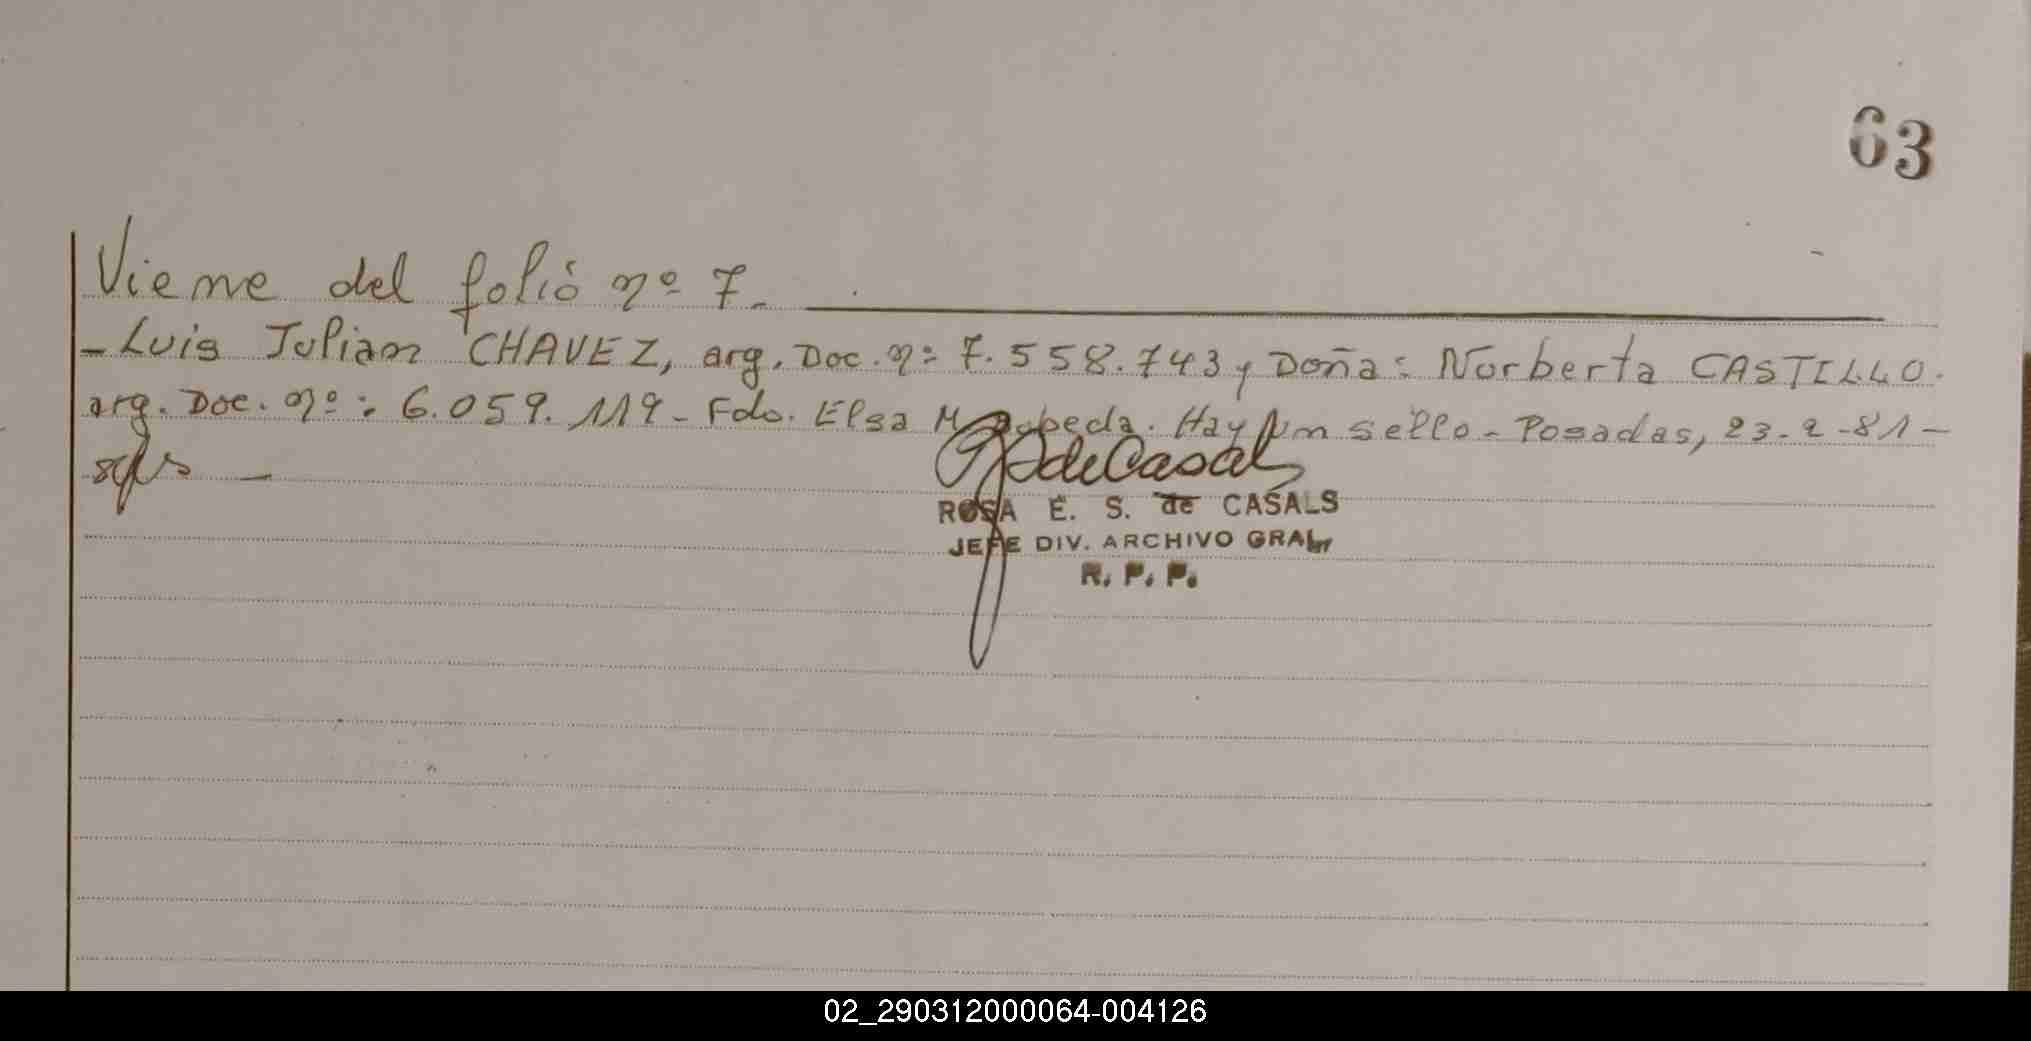 63
Viene del folió nº 7.
- Luis Julian CHAVEZ, arg. Doc. nº 7.558.743 y Doña: Norberta CASTILLO.
arg. Doc. nº: 6.059.119 - Fdo. Elsa M. Hay un sello - Posadas, 23-2-81-
de Casals
ROSA E. S. de CASALS
JEFE DIV. ARCHIVO GRAL.
R. P. P.
02_290312000064-004126